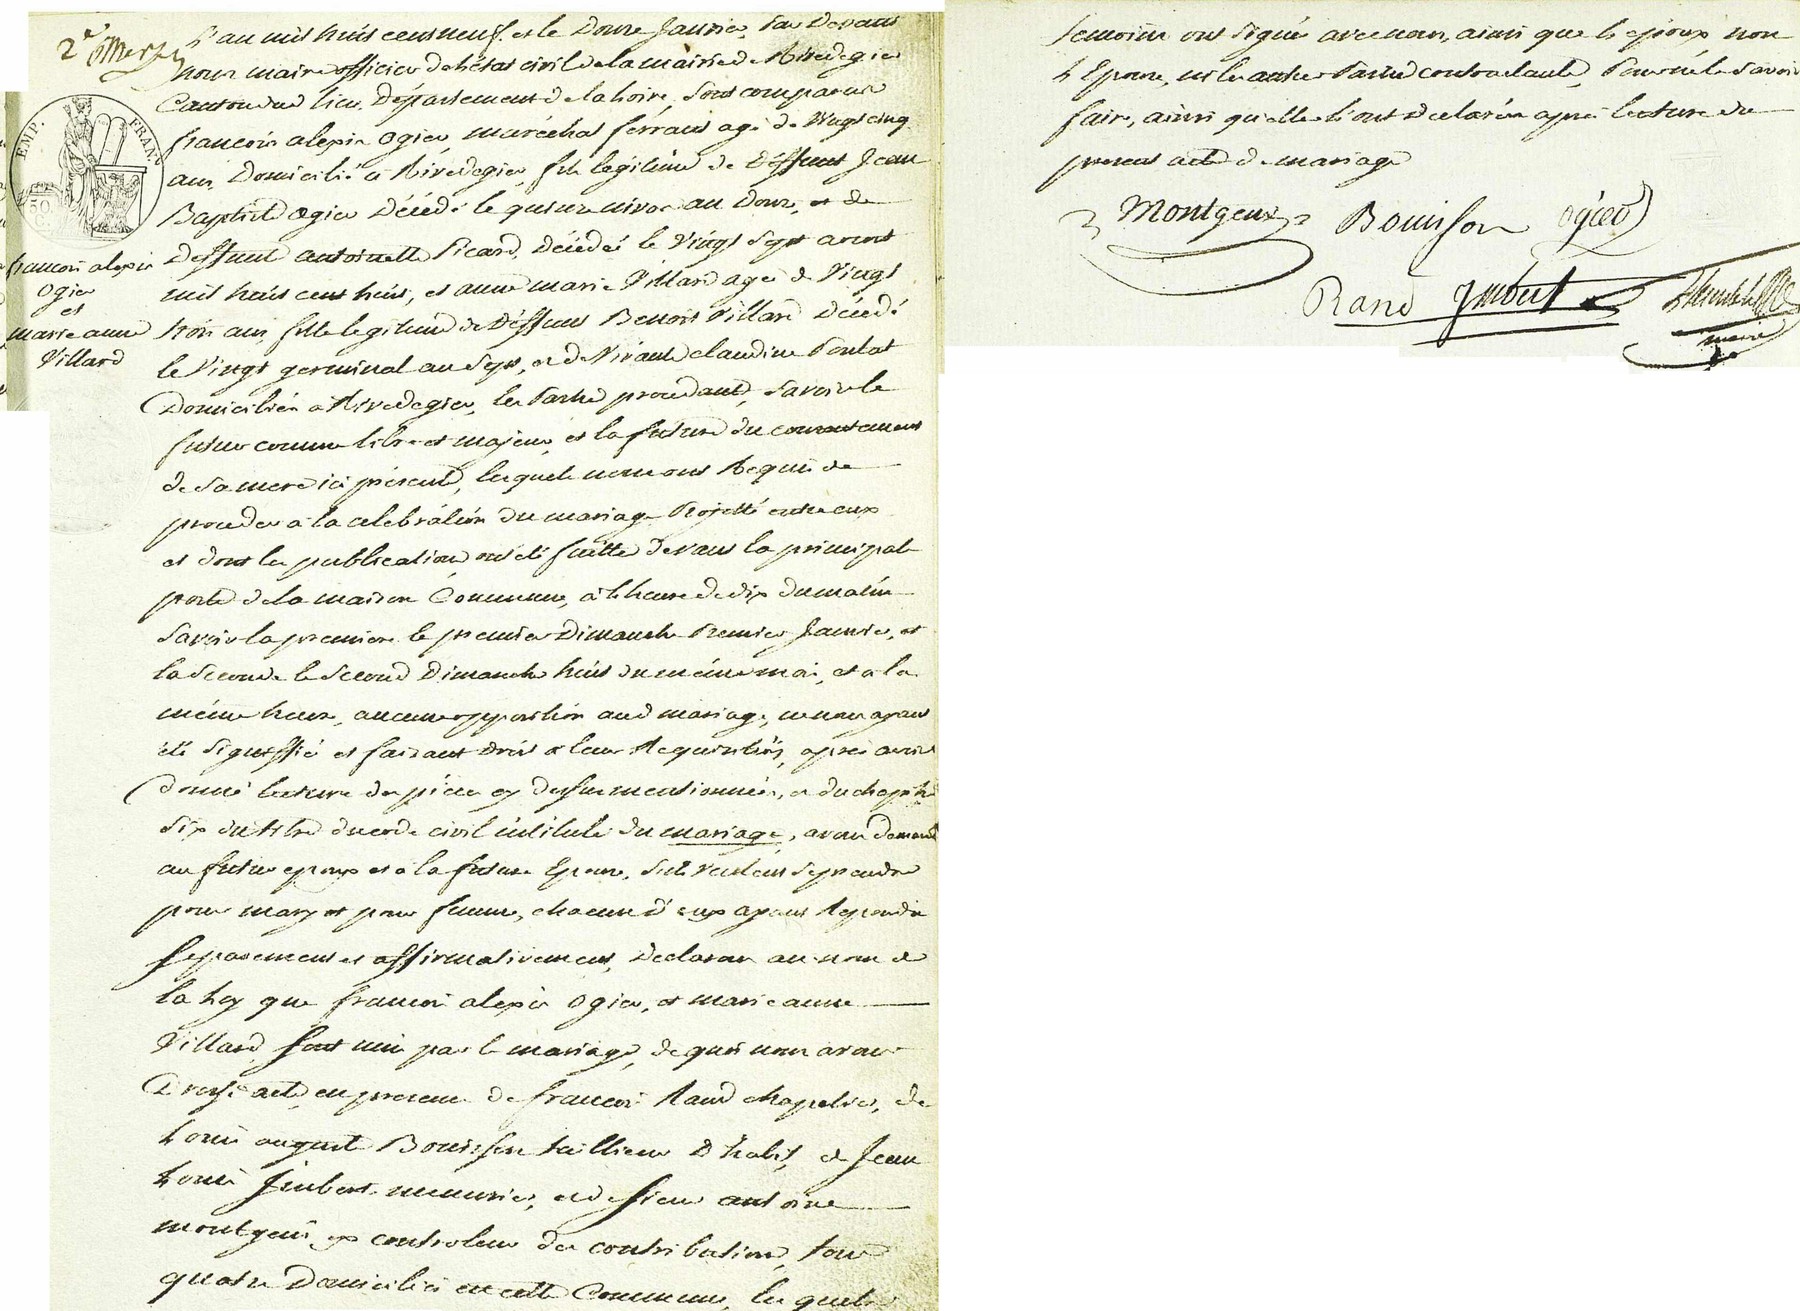 2e
L'an mil huit cent neuf et le Douze Janvier, par Devant
nous maire officier de l'état civil de la mairie de Rivedegier
Canton dud lieu, Département de la Loire, Sont comparus
françois alexis Ogier, maréchal ferrant agé de Vingt cinq
ans, Domicilié à Rivedegier, fils legitime de Deffunt Jean
Baptiste Ogier Décédé le quinze nivose an Douze, et de
Deffunte antoinette Picard, Décédée le Vingt Sept avril
mil huit cent huit, et anne marie Villard agée de Vingt
trois ans, fille legitime de Deffunt Benoit Villard Décédé
le Vingt germinal an Sept, et de Vivante claudine Poulat
Domiciliés à Rivedegier, les Parties procédant, Savoir le
futur comme libre et majeur, et la future du consentement
de Sa mere ici présente, lesquels nous ont Requis de
proceder à la celebration du mariage Projetté entre eux
et dont les publications ont été faittes devant la principale
porte de la maison Commune, à l'heure de dix du matin
Savoir la premiere le premier Dimanche Premier Janvier, et
la Seconde le Second Dimanche huit du même moi, et à la
même heure, aucune opposition aud mariage, ne nous ayant
été Signiffié et faisant Droit à leur Requisition, après avoir
donné lecture des pièces cy dessus mentionnées, et du chapitre
Six du titre du code civil intitulé du mariage, avons demandé
au futur epoux et à la future Epouse, S'ils Veulent Se prendre
pour mary et pour femme, chacun d'eux ayant Repondu
Séparement et affirmativement, Declarons au nom de
la Loy que françois alexis Ogier, et marie anne
Villard, Sont unis par le mariage, de quoi nous avons
Dressé acte, en presence de françois Rand chapelier, de
Louis auguste Bouisson tailleur D'habit, de Jean
Louis Imbert menuisier, et de Sieur antoine
montgeux ex controleur des contributions, tous
quatre Domiciliés en cette Commune, lesquels
françois alexis
Ogier
et
marie anne
Villard
EMP. FRAN.
temoins ont Signé avec nous, ainsi que l'epoux, non
l'Epouse, ni les autres Parties contractantes, Pour ne le Savoir
faire, ainsi qu'elles l'ont Declaré après lecture du
present acte de mariage
Montgeux Bouisson Ogier
Rand Imbert
maire